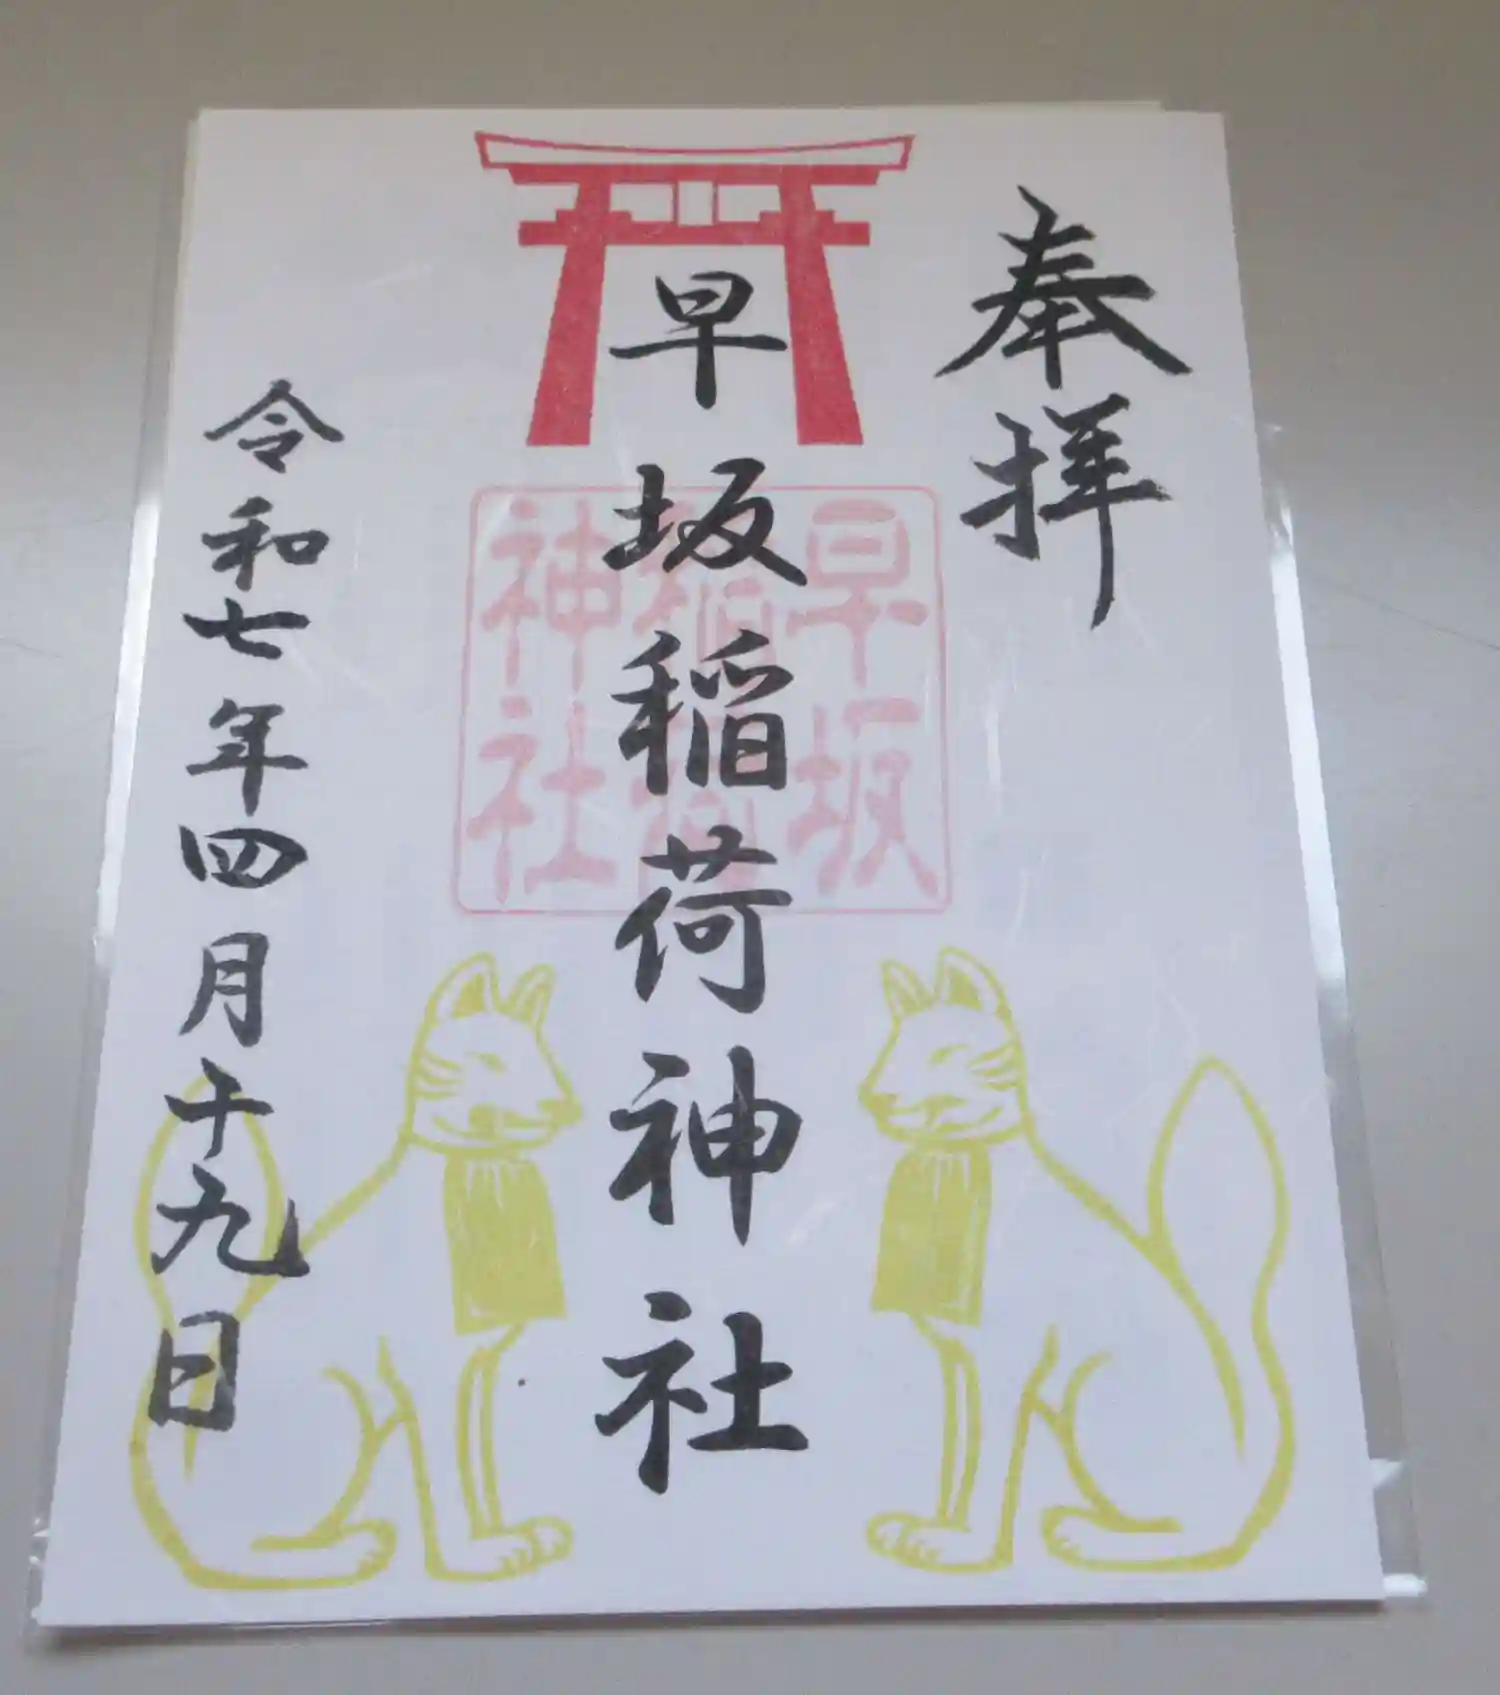 奉拝
早坂稲荷神社
早坂
稲荷
神社
令和七年四月十九日